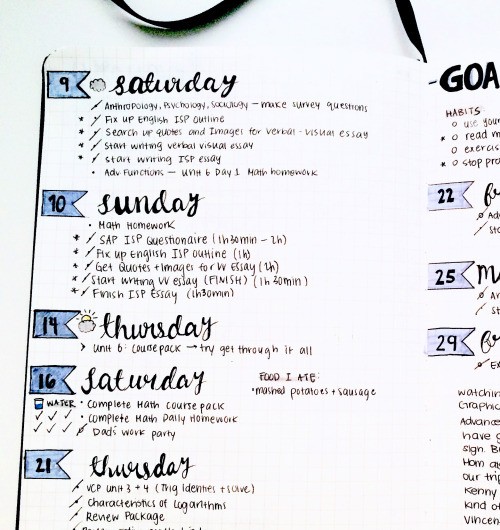 9 saturday
Anthropology, Psychology, Sociology — make survey questions
* Fix up English ISP outline
* Search up quotes and Images for verbal-visual essay
* Start writing verbal visual essay
* start writing ISP essay
• Adv. Functions — Unit 6 Day 1 Math homework
10 sunday
• Math Homework
* SAP ISP Questionaire (1h30min - 2h)
* Fix up English ISP outline (1h)
* Get Quotes + Images for VV Essay (2h)
* Start writing VV essay (FINISH) (1h 30min)
* Finish ISP Essay (1h30min)
14 thursday
> Unit 6: Coursepack → try get through it all
16 saturday
WATER
• Complete Math Course pack
• Complete Math Daily Homework
Dad's work party
FOOD I ATE:
• mashed potatoes + sausage
21 thursday
VCP unit 3 + 4 (Trig Identies + solve)
Characteristics of Logarithms
Review Package
- GOA
HABITS
o use your
* o read m
o exercis
* o stop pro
22 fr
Ad
Sta
25 m
Ar
St
29
Ex
watchin
Graphic
Advance
have g
sign. Bu
Hom a
our trip
Kenny
kind of
Vincen